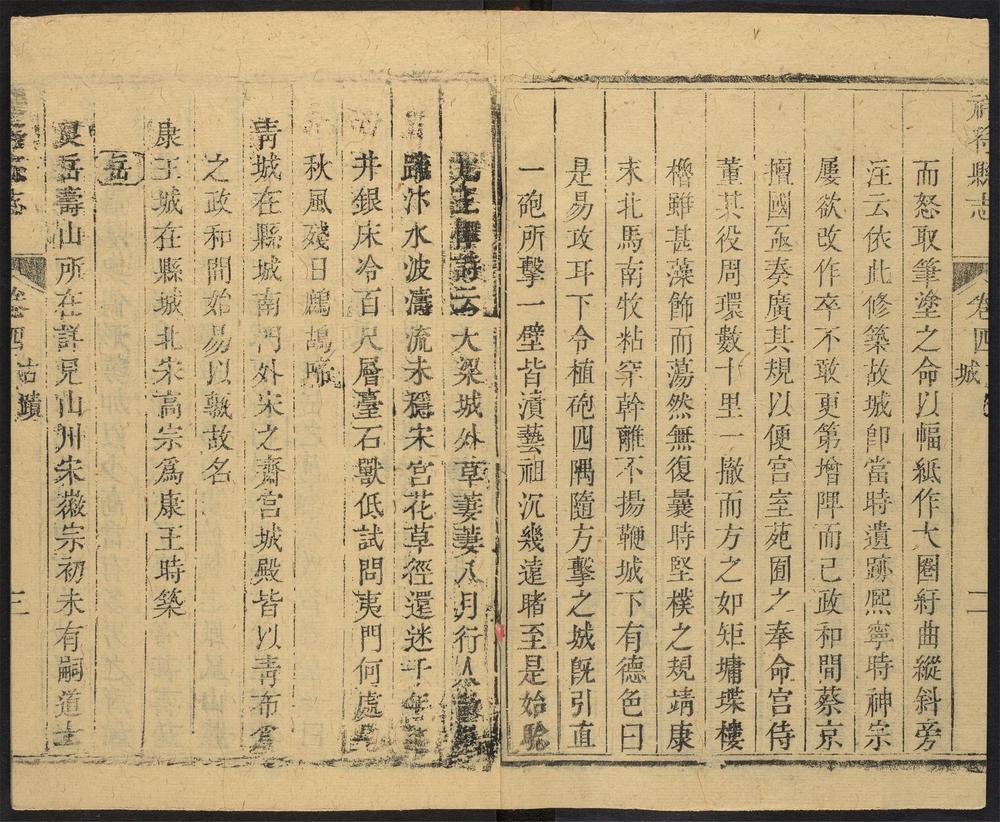 祥符縣志
卷四
城
二
而怒取筆塗之命以幅紙作大圈紆曲縱斜旁
注云依此修築故城卽當時遺跡熙寧時神宗
屢欲改作卒不敢更第增陴而已政和間蔡京
擅國亟奏廣其規以便宮室苑囿之奉命宮侍
董其役周環數十里一撤而方之如矩墉堞樓
櫓雖甚藻飾而蕩然無復曩時堅樸之規靖康
末北馬南牧粘罕幹離不揚鞭城下有德色曰
是易攻耳下令植砲四隅隨方擊之城旣引直
一砲所擊一壁皆潰藝祖沉幾遠睹至是始騐
詩云大梁城外草萋萋八月行人
蹄汴水波濤流未穩宋宮花草徑還迷千年
井銀床冷百尺層臺石獸低試問夷門何處
秋風殘日鷓鴣啼
靑城在縣城南門外宋之齋宮城殿皆以靑布爲
之政和間始易以甎故名
康王城在縣城北宋高宗爲康王時築
岳
艮岳壽山所在詳見山川宋徽宗初未有嗣道士
卷四
古蹟
三